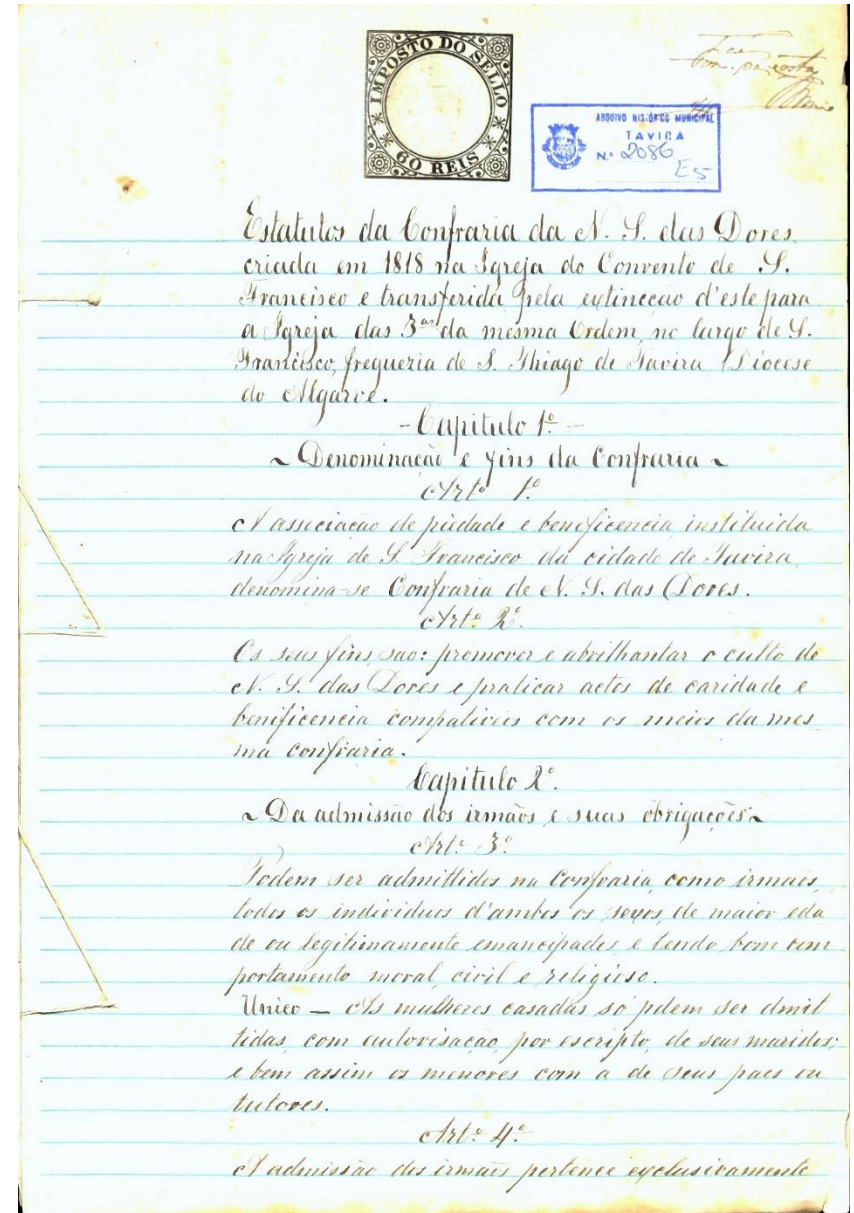 IMPOSTO DO SELLO
60 REIS
ARQUIVO HISTÓRICO MUNICIPAL
TAVIRA
N.º 2086
E5
Estatutos da Confraria da N. S. das Dores,
criada em 1818 na Igreja do Convento de S.
Francisco e transferida pela extincção d'este para
a Igreja das 3.as da mesma Ordem, no largo de S.
Francisco, freguezia de S. Thiago de Tavira (Diocese
do Algarve.
- Capitulo 1º -
~ Denominação e fins da Confraria ~
Artº 1º
A associação de piedade e beneficencia instituida
na Igreja de S. Francisco da cidade de Tavira,
denomina-se Confraria de N. S. das Dores.
Artº 2º
Os seus fins, são: promover e abrilhantar o culto de
N. S. das Dores e praticar actos de caridade e
benificencia compativeis com os meios da mes
ma confraria.
Capitulo 2º.
~ Da admissão dos irmãos e suas obrigações ~
Artº 3º
Podem ser admittidos na Confraria, como irmãos,
todos os individuos d'ambos os sexos, de maior eda
de ou legitimamente emancipados, e tendo bom com
portamento moral, civil e religioso.
Unico — As mulheres casadas só pdem ser dmit
tidas, com autorisação, por escripto, de seus maridos;
e bem assim os menores com a de seus paes ou
tutores.
Artº 4º
A admissão dos irmãos pertence exclusivamente